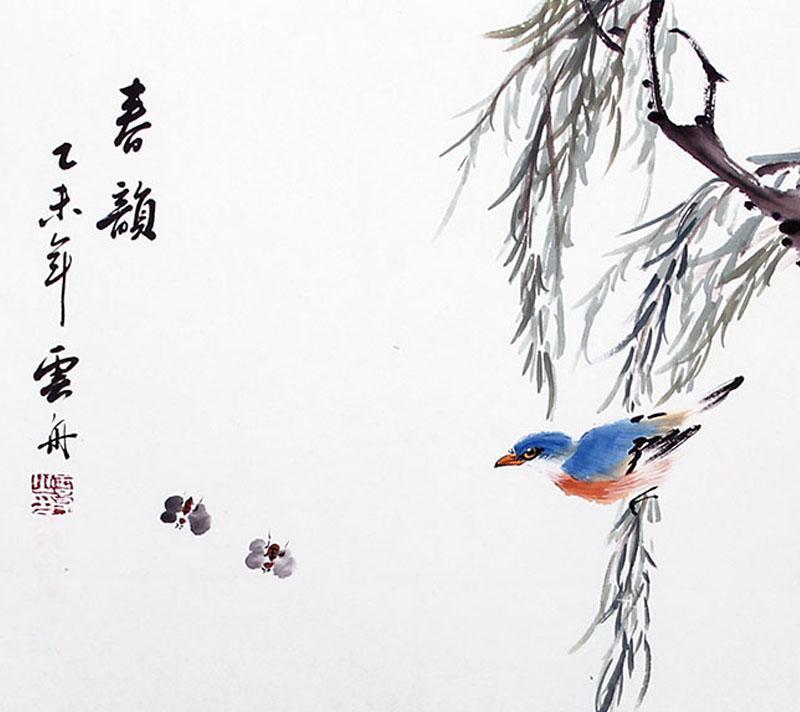 春韻
乙未年 雲舟